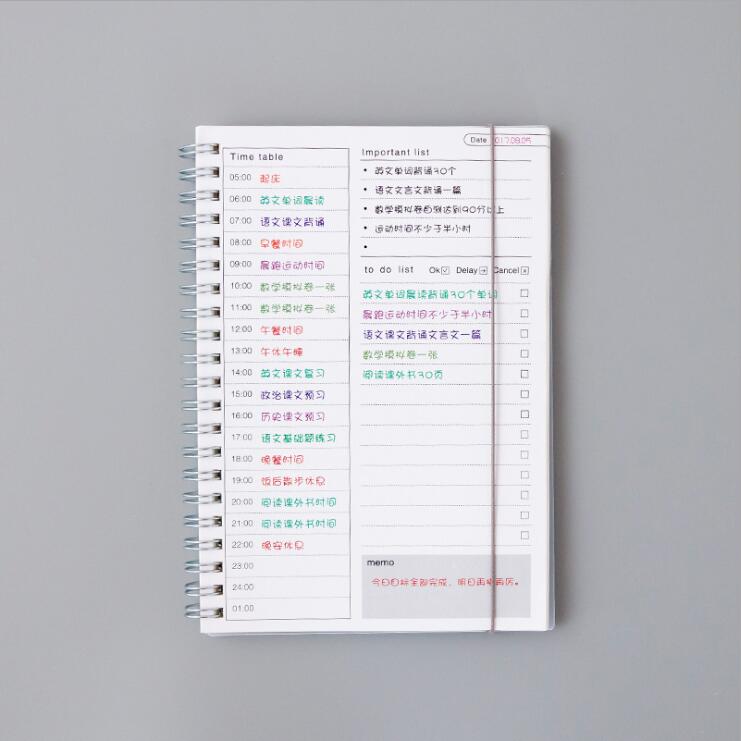 Date 017.09.05
Time table
05:00 起床
06:00 英文单词晨读
07:00 语文课文背诵
08:00 早餐时间
09:00 晨跑运动时间
10:00 数学模拟卷一张
11:00 数学模拟卷一张
12:00 午餐时间
13:00 午休午睡
14:00 英文课文复习
15:00 政治课文预习
16:00 历史课文预习
17:00 语文基础题练习
18:00 晚餐时间
19:00 饭后散步休息
20:00 阅读课外书时间
21:00 阅读课外书时间
22:00 晚安休息
23:00
24:00
01:00
Important list
• 英文单词背诵30个
• 语文文言文背诵一篇
• 数学模拟卷自测达到90分以上
• 运动时间不少于半小时
•
to do list Ok Delay Cancel
英文单词晨读背诵30个单词
晨跑运动时间不少于半小时
语文课文背诵文言文一篇
数学模拟卷一张
阅读课外书30页
memo
今日目标全部完成，明日再接再厉。